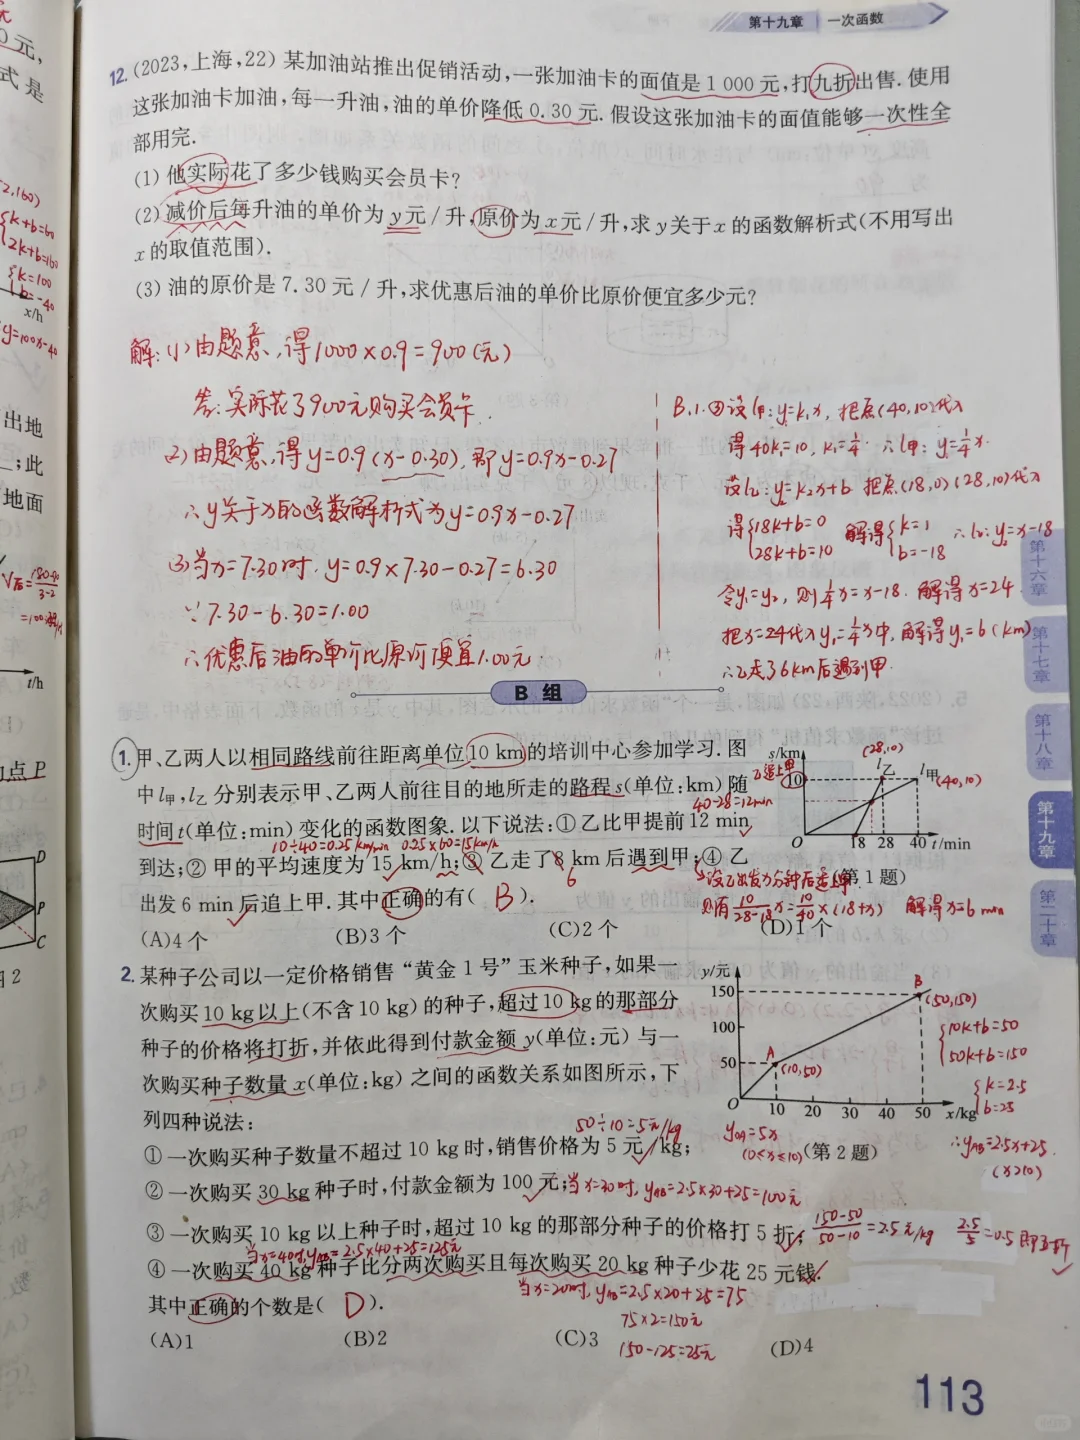 第十九章 一次函数
12. (2023,上海,22) 某加油站推出促销活动,一张加油卡的面值是1 000元,打九折出售.使用
这张加油卡加油,每一升油,油的单价降低0.30元.假设这张加油卡的面值能够一次性全
部用完.
(1) 他实际花了多少钱购买会员卡?
(2) 减价后每升油的单价为y元/升,原价为x元/升,求y关于x的函数解析式(不用写出
x的取值范围).
(3) 油的原价是7.30元/升,求优惠后油的单价比原价便宜多少元?
解:(1)由题意,得1000×0.9=900(元)
答:实际花了900元购买会员卡.
(2)由题意,得y=0.9(x-0.30),即y=0.9x-0.27
∴y关于x的函数解析式为y=0.9x-0.27
(3)当x=7.30时,y=0.9×7.30-0.27=6.30
∵7.30-6.30=1.00
∴优惠后油的单价比原价便宜1.00元.
B.1.③设l甲:y=k₁x,把点(40,10)代入
得40k₁=10,k₁=1/4 ∴l甲:y=1/4x.
设l乙:y=k₂x+b 把点(18,0)(28,10)代入
得{18k+b=0 28k+b=10 解得{k=1 b=-18 ∴l乙:y₂=x-18
令y₁=y₂,则1/4x=x-18.解得x=24
把x=24代入y₁=1/4x中,解得y₁=6(km)
∴乙走了6km后遇到甲.
B 组
1. 甲、乙两人以相同路线前往距离单位10 km的培训中心参加学习.图
中l甲,l乙分别表示甲、乙两人前往目的地所走的路程s(单位:km)随
40-28=12min
时间t(单位:min)变化的函数图象.以下说法:①乙比甲提前12 min
10÷40=0.25km/min 0.25×60=15km/h
到达;②甲的平均速度为15 km/h;③乙走了8 km后遇到甲;④乙
6
出发6 min后追上甲.其中正确的有( B ).
(A)4个 (B)3个 (C)2个 (D)1个
s/km
(28,10)
10
l乙 l甲 (40,10)
O 18 28 40 t/min
(第1题)
设乙出发x分钟后追上甲
则有10/(28-18)x=10/40×(18+x) 解得x=6min
2. 某种子公司以一定价格销售“黄金1号”玉米种子,如果一
次购买10 kg以上(不含10 kg)的种子,超过10 kg的那部分
种子的价格将打折,并依此得到付款金额y(单位:元)与一
次购买种子数量x(单位:kg)之间的函数关系如图所示,下
列四种说法:
50÷10=5元/kg
①一次购买种子数量不超过10 kg时,销售价格为5元/kg;
②一次购买30 kg种子时,付款金额为100元;当x=30时,yAB=2.5×30+25=100元
③一次购买10 kg以上种子时,超过10 kg的那部分种子的价格打5折;(150-50)/(50-10)=2.5元/kg 2.5/5=0.5即五折
当x=40时,yAB=2.5×40+25=125元
④一次购买40 kg种子比分两次购买且每次购买20 kg种子少花25元钱.
当x=20时,yAB=2.5×20+25=75
其中正确的个数是( D ).
75×2=150元
150-125=25元
(A)1 (B)2 (C)3 (D)4
y/元
150
B
(50,150)
100
50
A
(10,50)
O 10 20 30 40 50 x/kg
{10k+b=50
50k+b=150
{k=2.5
b=25
yOA=5x
(0≤x≤10)
(第2题)
∴yAB=2.5x+25.
(x>10)
第十六章
第十七章
第十八章
第十九章
第二十章
113
0元,
式是
2,160)
{k+b=60
2k+b=160
{k=100
b=-40
x/h
y=100x-40
出地
;此
地面
=100
t/h
点P
D
P
C